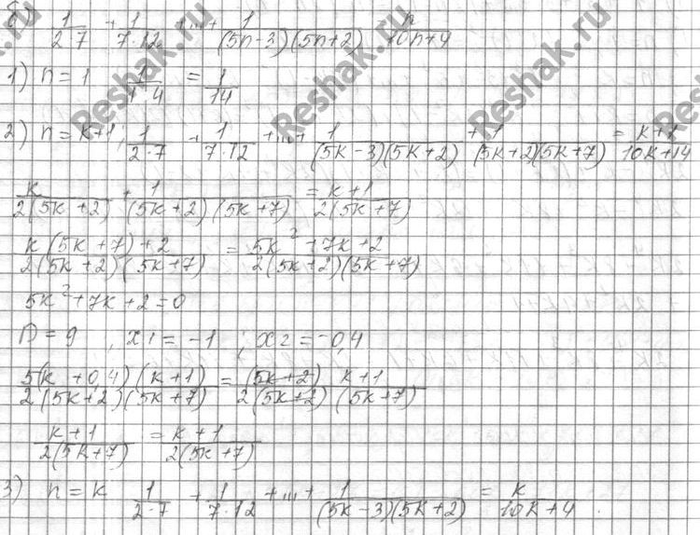 б) 1/(2·7) + 1/(7·12) + ... + 1/((5n-3)(5n+2)) n/(10n+4)
1) n=1 1/(1·4) = 1/14
2) n=k+1, 1/(2·7) + 1/(7·12) + ... + 1/((5k-3)(5k+2)) + 1/((5k+2)(5k+7)) = (k+1)/(10k+14)
k/(2(5k+2)) + 1/((5k+2)(5k+7)) = (k+1)/(2(5k+7))
(k(5k+7)+2)/(2(5k+2)(5k+7)) = (5k²+7k+2)/(2(5k+2)(5k+7))
5k²+7k+2=0
D=9, x1=-1; x2=-0,4
(5(k+0,4)(k+1))/(2(5k+2)(5k+7)) = ((5k+2) k+1)/(2(5k+2)(5k+7))
(k+1)/(2(5k+7)) = (k+1)/(2(5k+7))
3) n=k 1/(2·7) + 1/(7·12) + ... + 1/((5k-3)(5k+2)) = k/(10k+4).
Reshak.ru
Reshak.ru
Reshak.ru
Reshak.ru
Reshak.ru
Reshak.ru